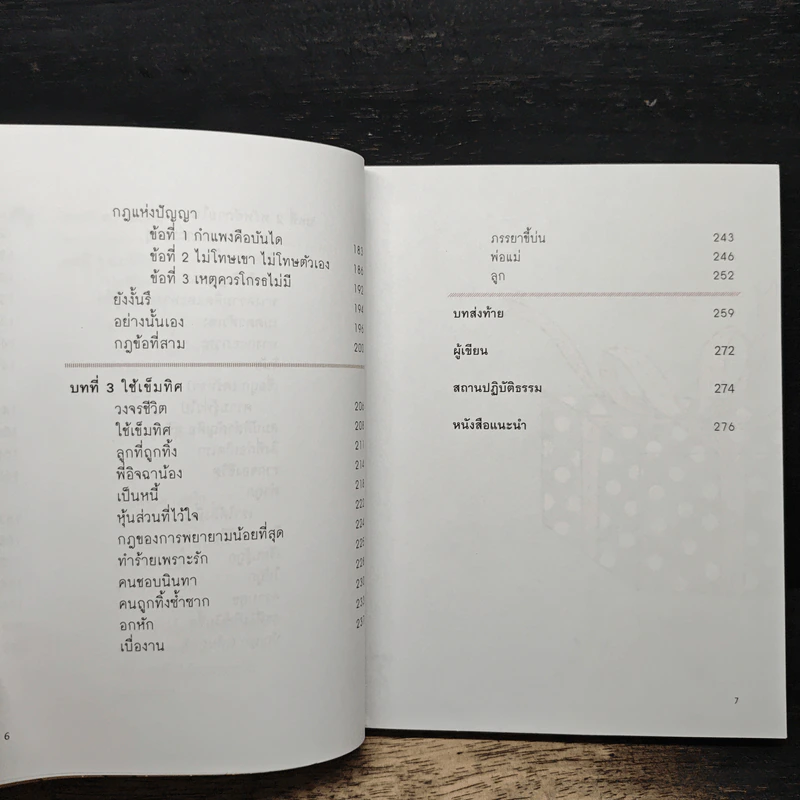 กฎแห่งปัญญา
ข้อที่ 1 กำแพงคือบันได 183
ข้อที่ 2 ไม่โทษเขา ไม่โทษตัวเอง 186
ข้อที่ 3 เหตุควรโกรธไม่มี 192
ยังงั้นรึ 194
อย่างนั้นเอง 196
กฎข้อที่สาม 200
บทที่ 3 ใช้เข็มทิศ
วงจรชีวิต 206
ใช้เข็มทิศ 208
ลูกที่ถูกทิ้ง 211
พี่อิจฉาน้อง 214
เป็นหนี้ 218
หุ้นส่วนที่ไว้ใจ 222
กฎของการพยายามน้อยที่สุด 224
ทำร้ายเพราะรัก 225
คนชอบนินทา 226
คนถูกทิ้งซ้ำซาก 230
อกหัก 233
เบื่องาน 237
6
ภรรยาขี้บ่น 243
พ่อแม่ 246
ลูก 252
บทส่งท้าย 259
ผู้เขียน 272
สถานปฏิบัติธรรม 274
หนังสือแนะนำ 276
7